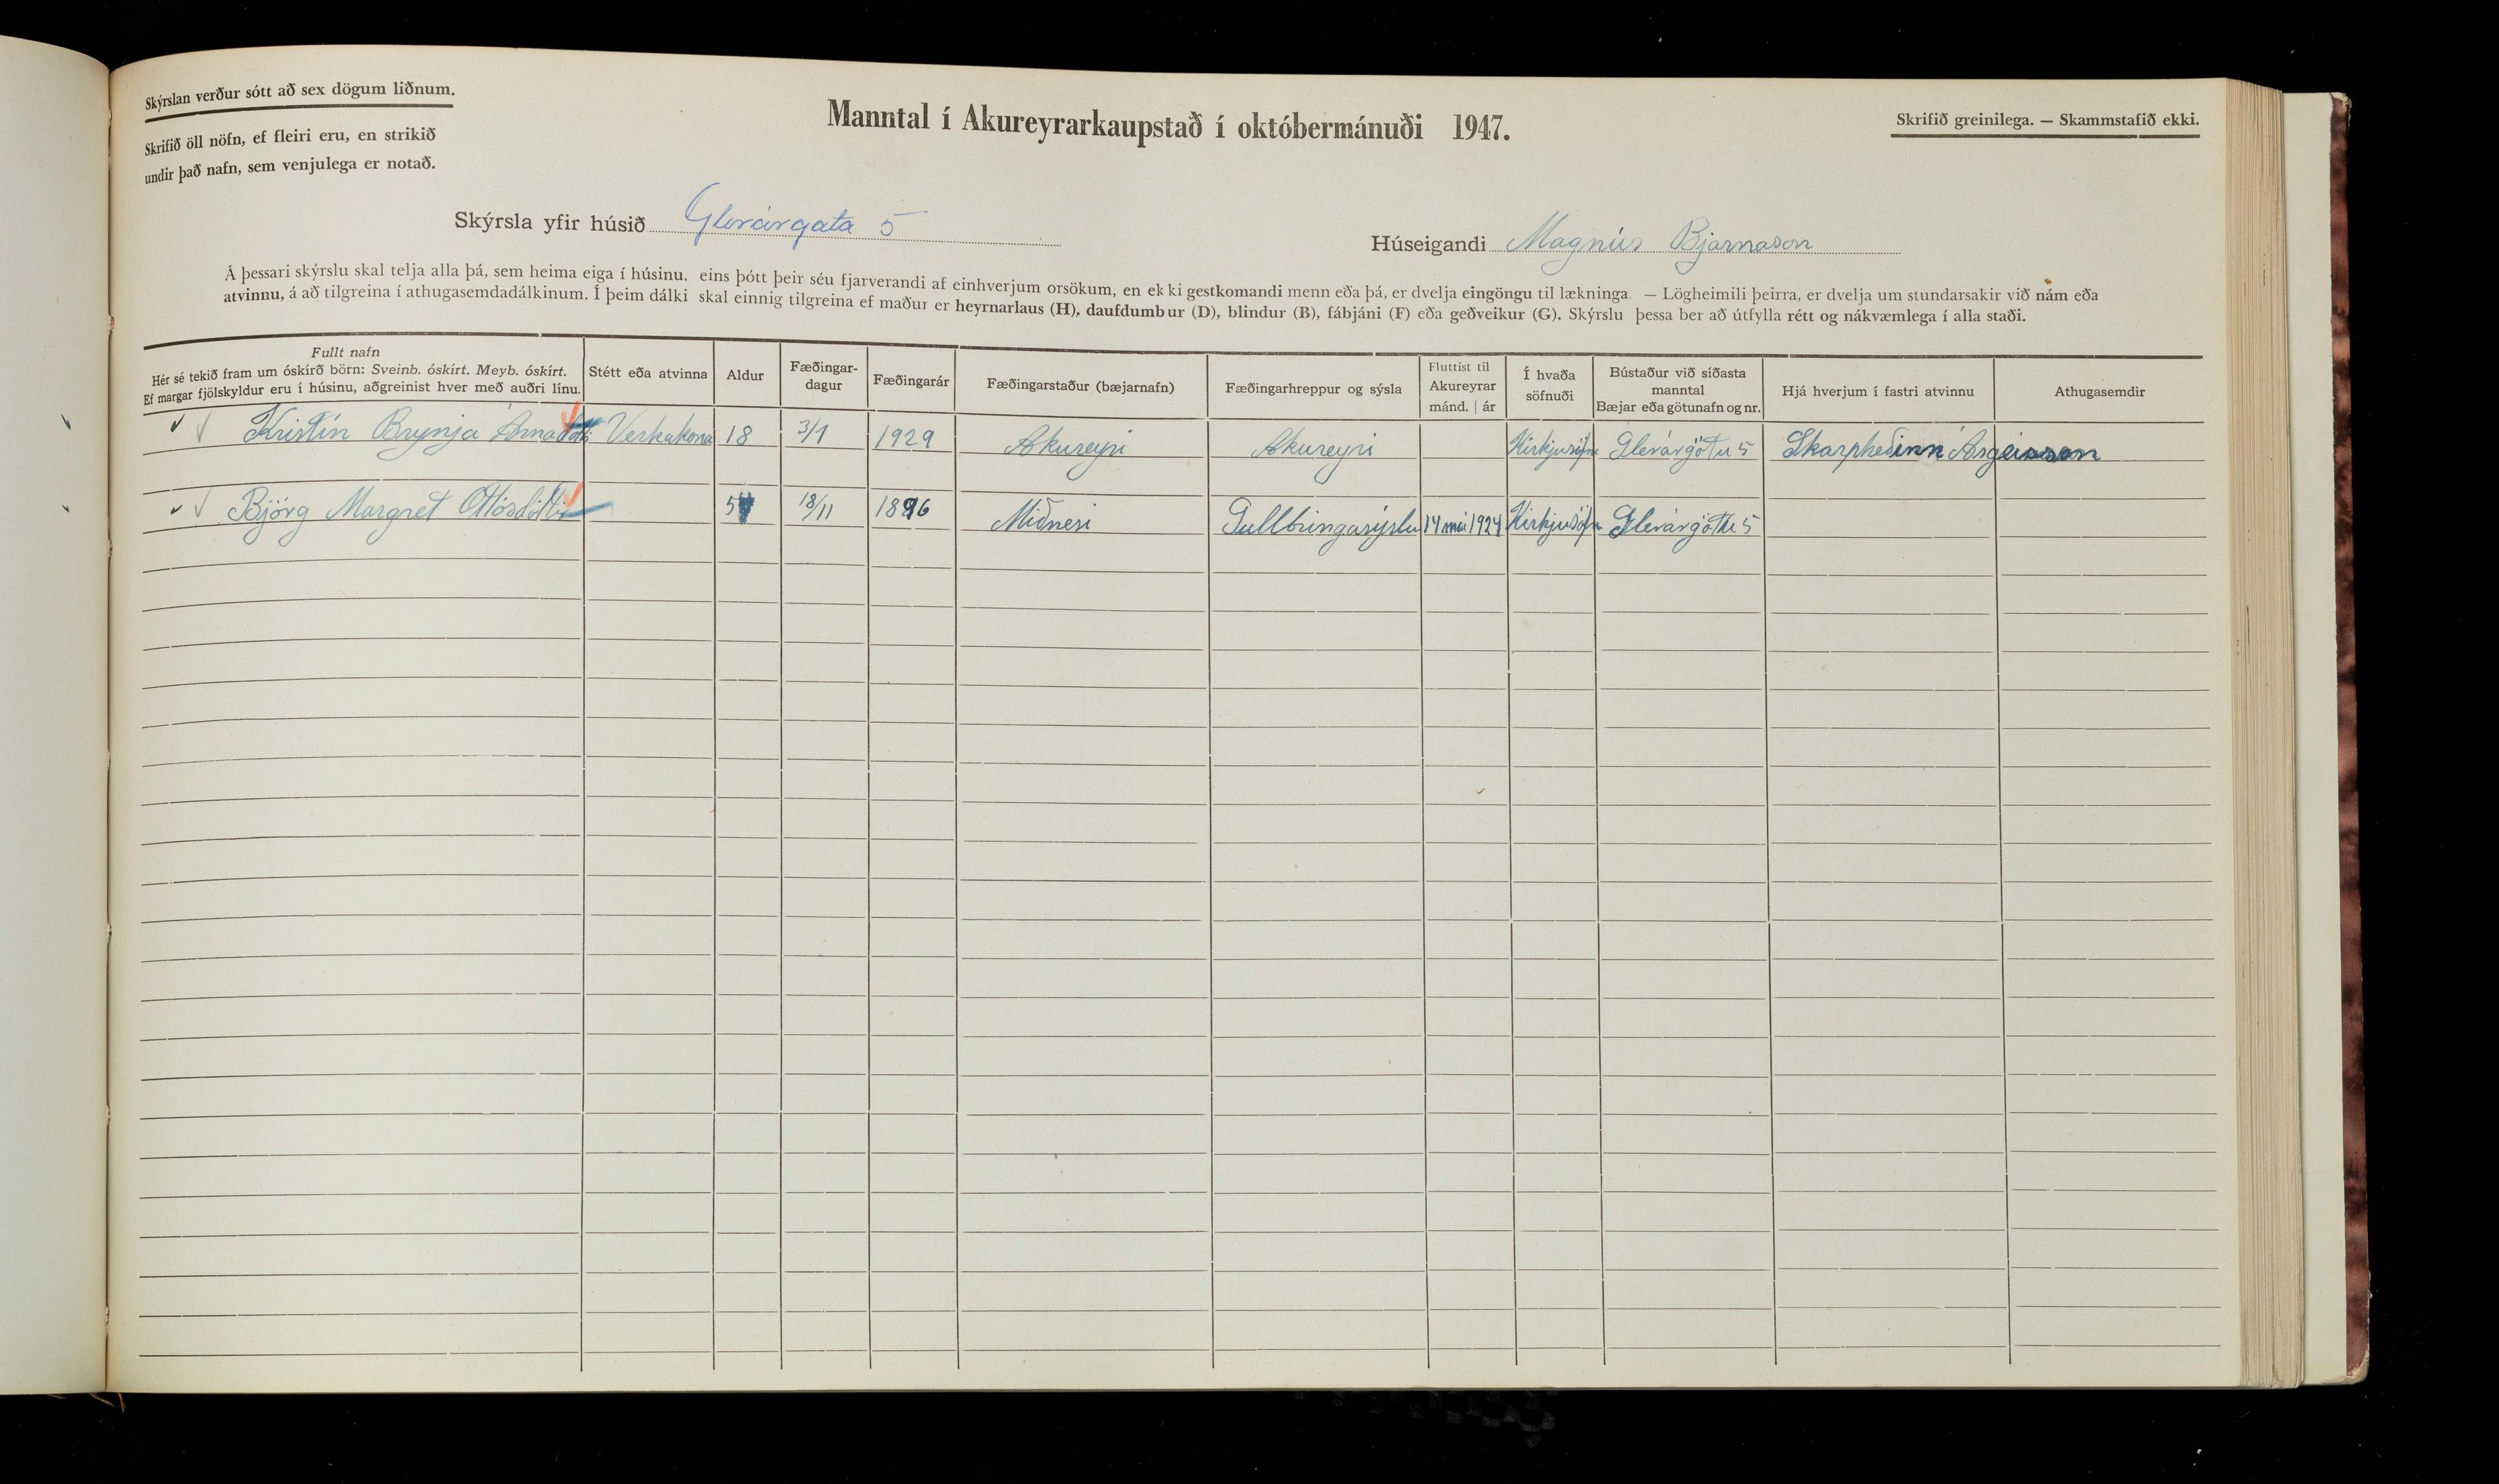 Skýrslan verður sótt að sex dögum liðnum.
Skrifið öll nöfn, ef fleiri eru, en strikið
undir það nafn, sem venjulega er notað.
Manntal í Akureyrarkaupstað í októbermánuði 1947.
Skrifið greinilega. — Skammstafið ekki.
Skýrsla yfir húsið Glerárgata 5
Húseigandi Magnús Bjarnason
Á þessari skýrslu skal telja alla þá, sem heima eiga í húsinu, eins þótt þeir séu fjarverandi af einhverjum orsökum, en ekki gestkomandi menn eða þá, er dvelja eingöngu til lækninga. — Lögheimili þeirra, er dvelja um stundarsakir við nám eða
atvinnu, á að tilgreina í athugasemdadálkinum. Í þeim dálki skal einnig tilgreina ef maður er heyrnarlaus (H), daufdumbur (D), blindur (B), fábjáni (F) eða geðveikur (G). Skýrslu þessa ber að útfylla rétt og nákvæmlega í alla staði.
Fullt nafn
Hér sé tekið fram um óskírð börn: Sveinb. óskírt. Meyb. óskírt.
Ef margar fjölskyldur eru í húsinu, aðgreinist hver með auðri línu.
Stétt eða atvinna
Aldur
Fæðingar-
dagur
Fæðingarár
Fæðingarstaður (bæjarnafn)
Fæðingarhreppur og sýsla
Fluttist til
Akureyrar
mánd. | ár
Í hvaða
söfnuði
Bústaður við síðasta
manntal
Bæjar eða götunafn og nr.
Hjá hverjum í fastri atvinnu
Athugasemdir
Kristín Brynja Árnadótti Verkakona 18 3/1 1929 Akureyri Akureyri Kirkjusöfn Glerárgötu 5 Skarphéðinn Ásgeirsson
Björg Margret Ottósdóttir 18/11 1896 Miðnesi Gullbringusýslu 14 maí 1924 Kirkjusöfn Glerárgötu 5